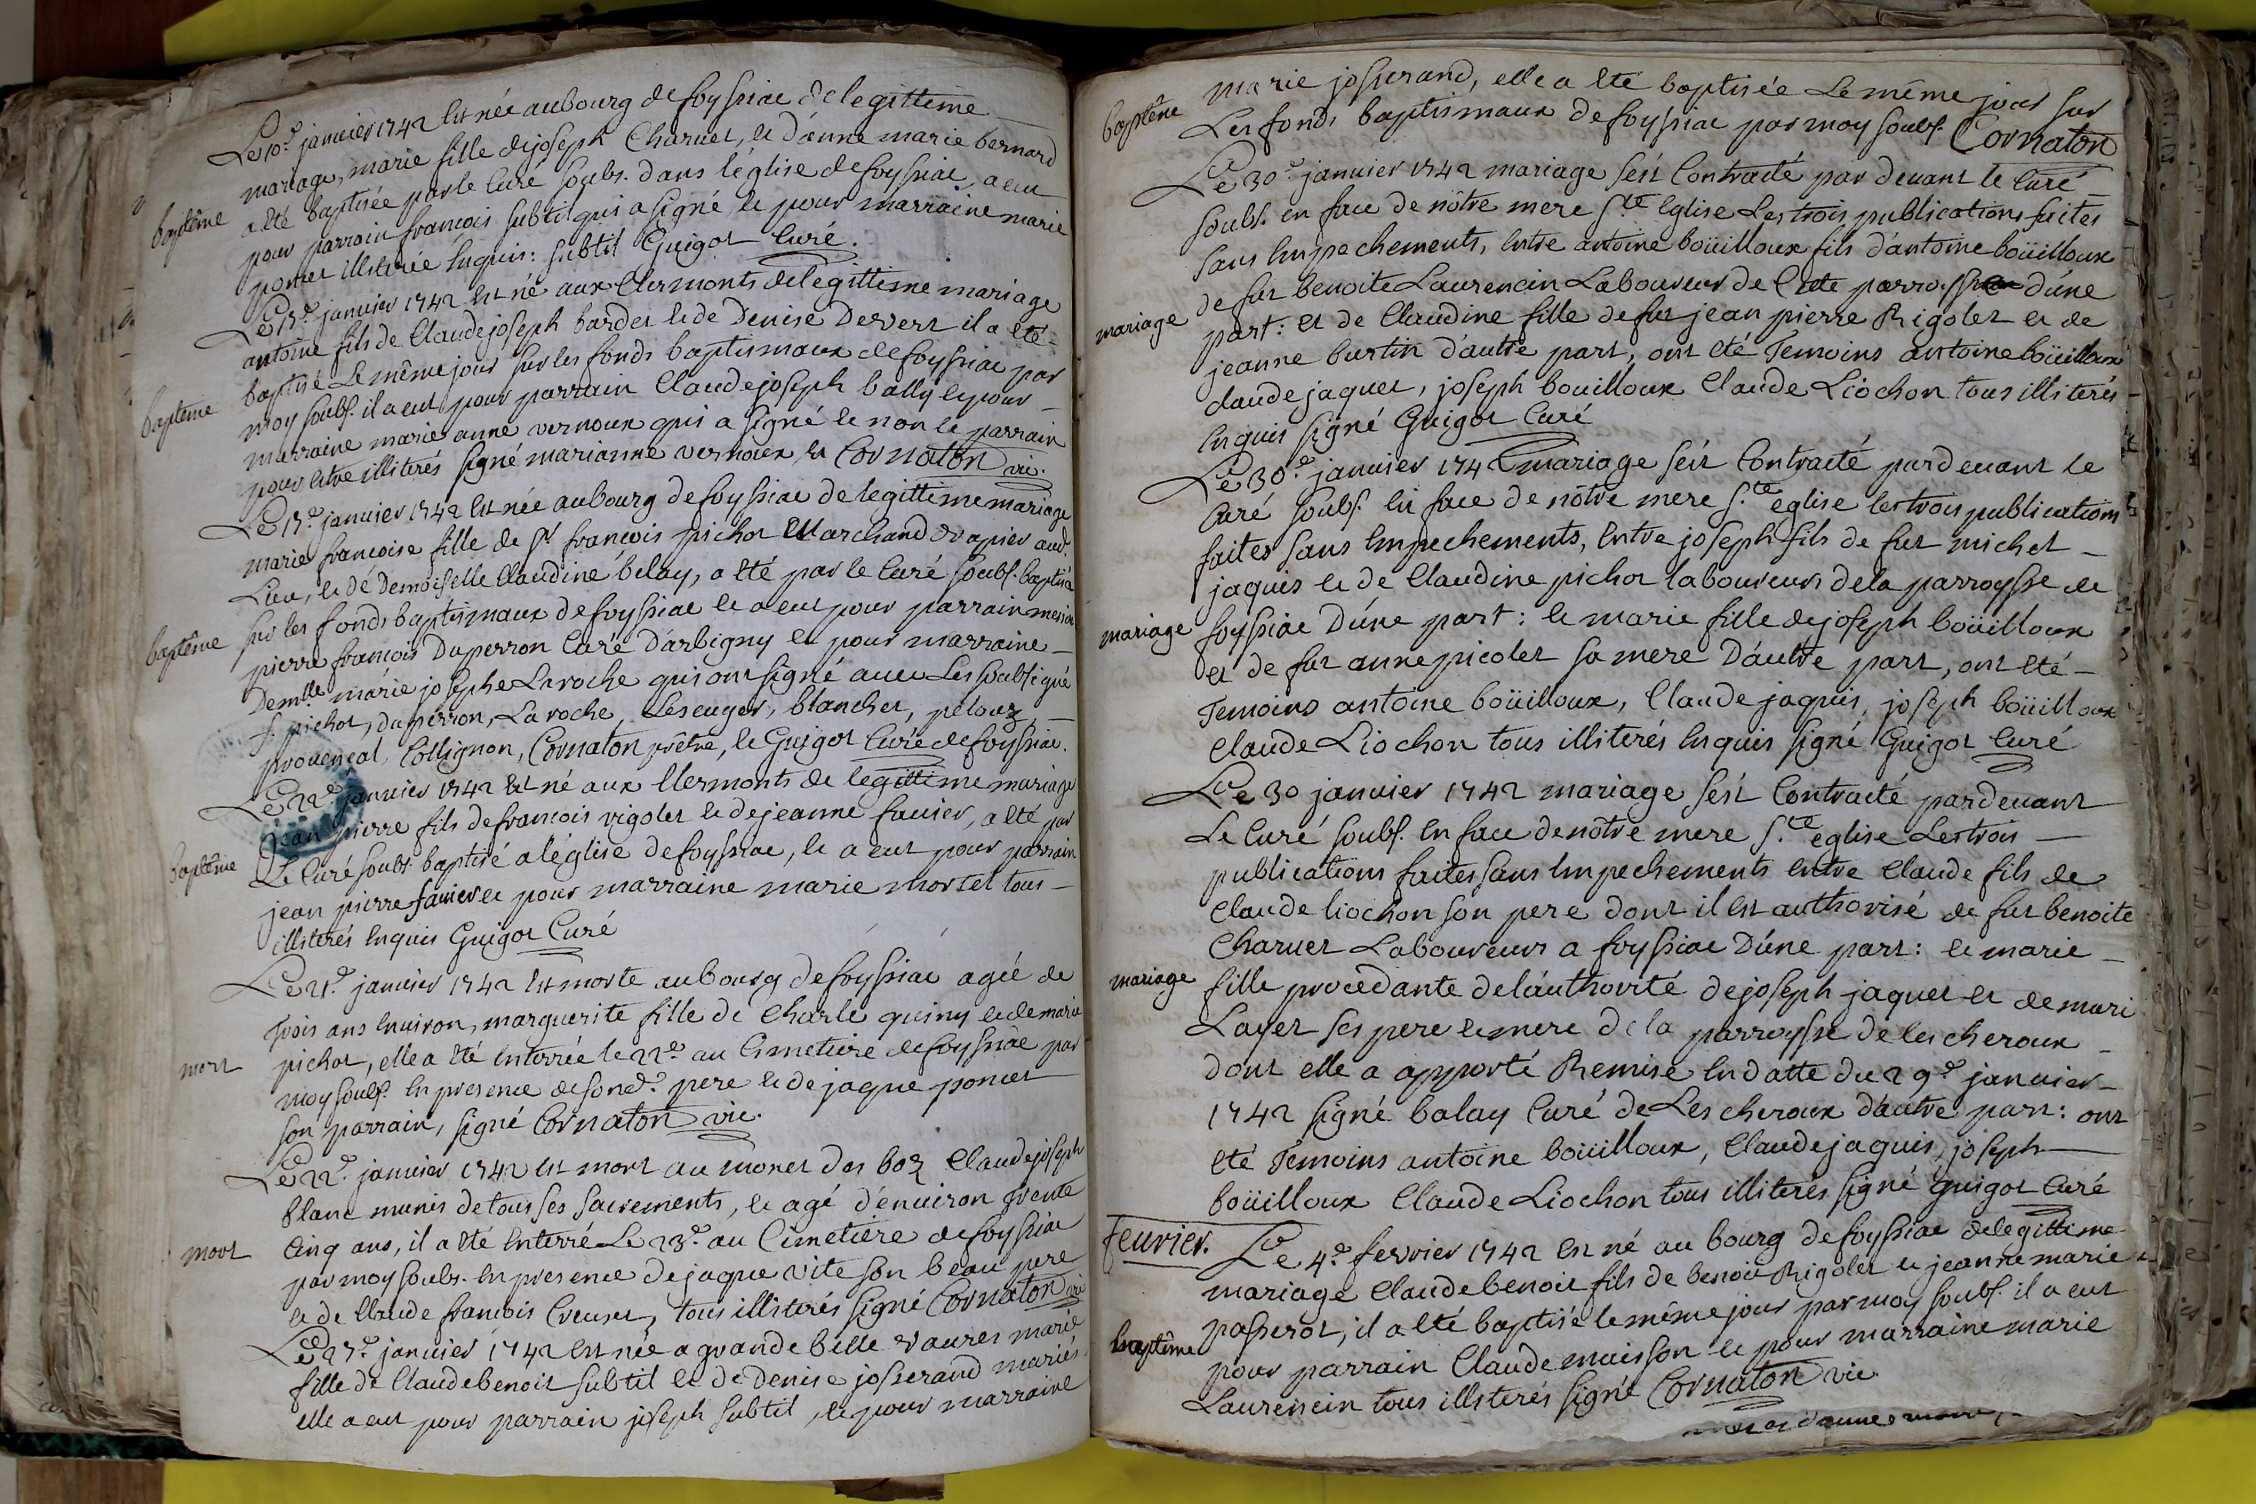 Le 10.e janvier 1742 est née au bourg de foyssiac de legittime
mariage, marie fille de joseph Charuet, et d'anne marie bernard
a eté baptisée par le Curé soubs. dans l'église de foyssiac, a eut
baptême
pour parrain francois subtil qui a signé, et pour marraine marie
poncet illiterée enquis: subtil Guigot Curé.
Le 13.e janvier 1742 est né aux Clermonts de legittime mariage
antoine fils de Claude joseph bardet et de Denise Dervert il a eté
baptisé Le même jour sur les fonds baptismaux de foyssiac par
baptême
moy soubs. il a eut pour parrain Claude joseph bally et pour
marraine marie anne vernoux qui a signé et non le parrain
pour etre illiterés signé marianne vernoux et Cornaton vic.
Le 17.e janvier 1742 est née au bourg de foyssiac de legittime mariage
marie francoise fille de sr francois pichot Marchand drapier aud.
Lieu, et de Demoiselle Claudine belay, a eté par le Curé soubs. baptisée
baptême
sur les fonds baptismaux de foyssiac et a eut pour parrain messire
pierre francois Duperron Curé d'arbigny et pour marraine
Demlle marie josephe Laroche qui ont signé avec Les soubsigné
f. pichot, duperron, Laroche, Lescuyer, blanchet, pelouz,
provençal, Collignon, Cornaton prêtre, et Guigot Curé de foyssiac.
Le 22.e janvier 1742 est né aux Clermonts de legittime mariage
jean pierre fils de francois rigolet et de jeanne favier, a eté par
baptême
Le Curé soubs. baptisé a l'église de foyssiac, et a eut pour parrain
jean pierre favier et pour marraine marie morsel tous
illiterés enquis Guigot Curé
Le 21.e janvier 1742 est morte au bourg de foyssiac agée de
trois ans environ, marguerite fille de Charle quiny et de marie
mort
pichot, elle a eté enterrée le 22.e au Cimetiere de foyssiac par
moy soubs. en presence de son d. pere et de jaque poncet
son parrain, signé Cornaton vic.
Le 22.e janvier 1742 est mort au monet das boz Claude joseph
blanc munis de tous ses sacrements, et agé d'environ trente
mort
Cinq ans, il a eté enterré Le 23.e au Cimetiere de foyssiac
par moy soubs. en presence de jaque vite son beau pere
et de Claude francois Creuset, tous illiterés signé Cornaton vic
Le 27.e janvier 1742 est née a grande belle vavres marie
fille de Claude benoit subtil et de denise josserand mariés
elle a eut pour parrain joseph subtil, et pour marraine
baptême
marie josserand, elle a eté baptisée Le même jour sur
Les fonds baptismaux de foyssiac par moy soubs. Cornaton
Le 30.e janvier 1742 mariage s'est Contracté par devant le Curé
soubs. en face de nôtre mere s.te eglise Les trois publications faites
sans empechements, entre antoine boüilloux fils d'antoine boüilloux
de fut benoite Laurencin Laboureur de Cette parroysse d'une
mariage
part: et de Claudine fille de fut jean pierre Rigolet et de
jeanne burtin d'autre part, ont eté Temoins antoine boüilloux
claude jaquet, joseph bouilloux Claude Liochon tous illiterés
enquis signé Guigot Curé
Le 30.e janvier 1742 mariage s'est Contracté pardevant le
Curé soubs. en face de nôtre mere s.te eglise les trois publications
faites sans empechements, entre joseph fils de fut michel
jaquis et de Claudine pichot laboureurs de la parroysse de
mariage
foyssiac D'une part: et marie fille de joseph boüilloux
et de fut anne picolet sa mere D'autre part, ont eté
Temoins antoine boüilloux, Claude jaquis, joseph boüilloux
Claude Liochon tous illiterés enquis signé Guigot Curé
Le 30 janvier 1742 mariage s'est Contracté pardevant
Le Curé soubs. en face de nôtre mere s.te eglise Les trois
publications faites sans empechements entre Claude fils de
Claude liochon son pere dont il est authorisé de fut benoite
Charuet Laboureurs a foyssiac D'une part: et marie
mariage
fille procedante de l'authorité de joseph jaquet et de mari
Layer ses pere et mere de la parroysse de les cheroux
dont elle a apporté Remise en datte du 29.e janvier
1742 signé balay Curé de Les cheroux d'autre part: ont
eté Temoins antoine boüilloux, Claude jaquis, joseph
boüilloux Claude Liochon tous illiterés signé guigot Curé
fevrier.
Le 4.e fevrier 1742 est né au bourg de foyssiac de legittime
mariage Claude benoit fils de benoit Rigolet et jeanne marie
passerot, il a eté baptisé le même jour par moy soubs. il a eut
baptême
pour parrain Claude maisson et pour marraine marie
Laurencin tous illiterés signé Cornaton vic.